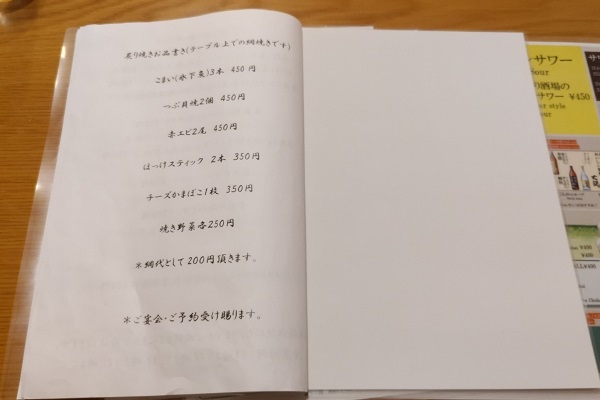 炙り焼きお品書き(テーブル上での網焼きです)
こまい(氷下魚)3本 450円
つぶ貝焼2個 450円
赤エビ2尾 450円
ほっけスティック 2本 350円
チーズかまぼこ1枚 350円
焼き野菜各250円
*網代として200円頂きます。
*ご宴会・ご予約受け賜ります。
サワー
our
り酒場の
サワー ¥450
r style
our